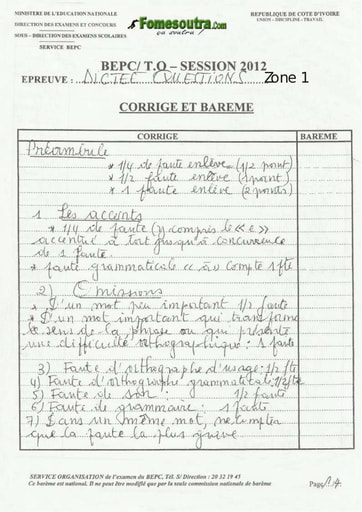 MINISTERE DE L'EDUCATION NATIONALE
DIRECTION DES EXAMENS ET CONCOURS
SOUS – DIRECTION DES EXAMENS SCOLAIRES
SERVICE BEPC
Fomesoutra.com
ça soutra !
REPUBLIQUE DE COTE D'IVOIRE
UNION – DISCIPLINE – TRAVAIL
BEPC/ T.O – SESSION 2012
EPREUVE : DICTEE QUESTIONS Zone 1
CORRIGE ET BAREME
CORRIGE
BAREME
Préambule
* 1/4 de faute enlève (1/2 point)
* 1/2 faute enlève (1 point)
* 1 faute enlève (2 points)
1 Les accents
* 1/4 de faute (y compris le « e »
accentué à tort jusqu'à concurrence
de 1 faute.
* faute grammaticale « à » compte 1 fte
2) Omissions
* D'un mot peu important 1/2 faute
* D'un mot important qui transforme
le sens de la phrase ou qui présente
une difficulté orthographique : 1 faute
3) Faute d'orthographe d'usage : 1/2 fte
4) Faute d'orthographe grammaticale : 1/2 fte
5) Faute de son : 1/2 faute
6) Faute de grammaire : 1 faute
7) Dans un même mot, ne compter
que la faute la plus grave.
SERVICE ORGANISATION de l'examen du BEPC, Tél. S/ Direction : 20 32 19 45
Ce barème est national. Il ne peut être modifié que par la seule commission nationale de barème
Page